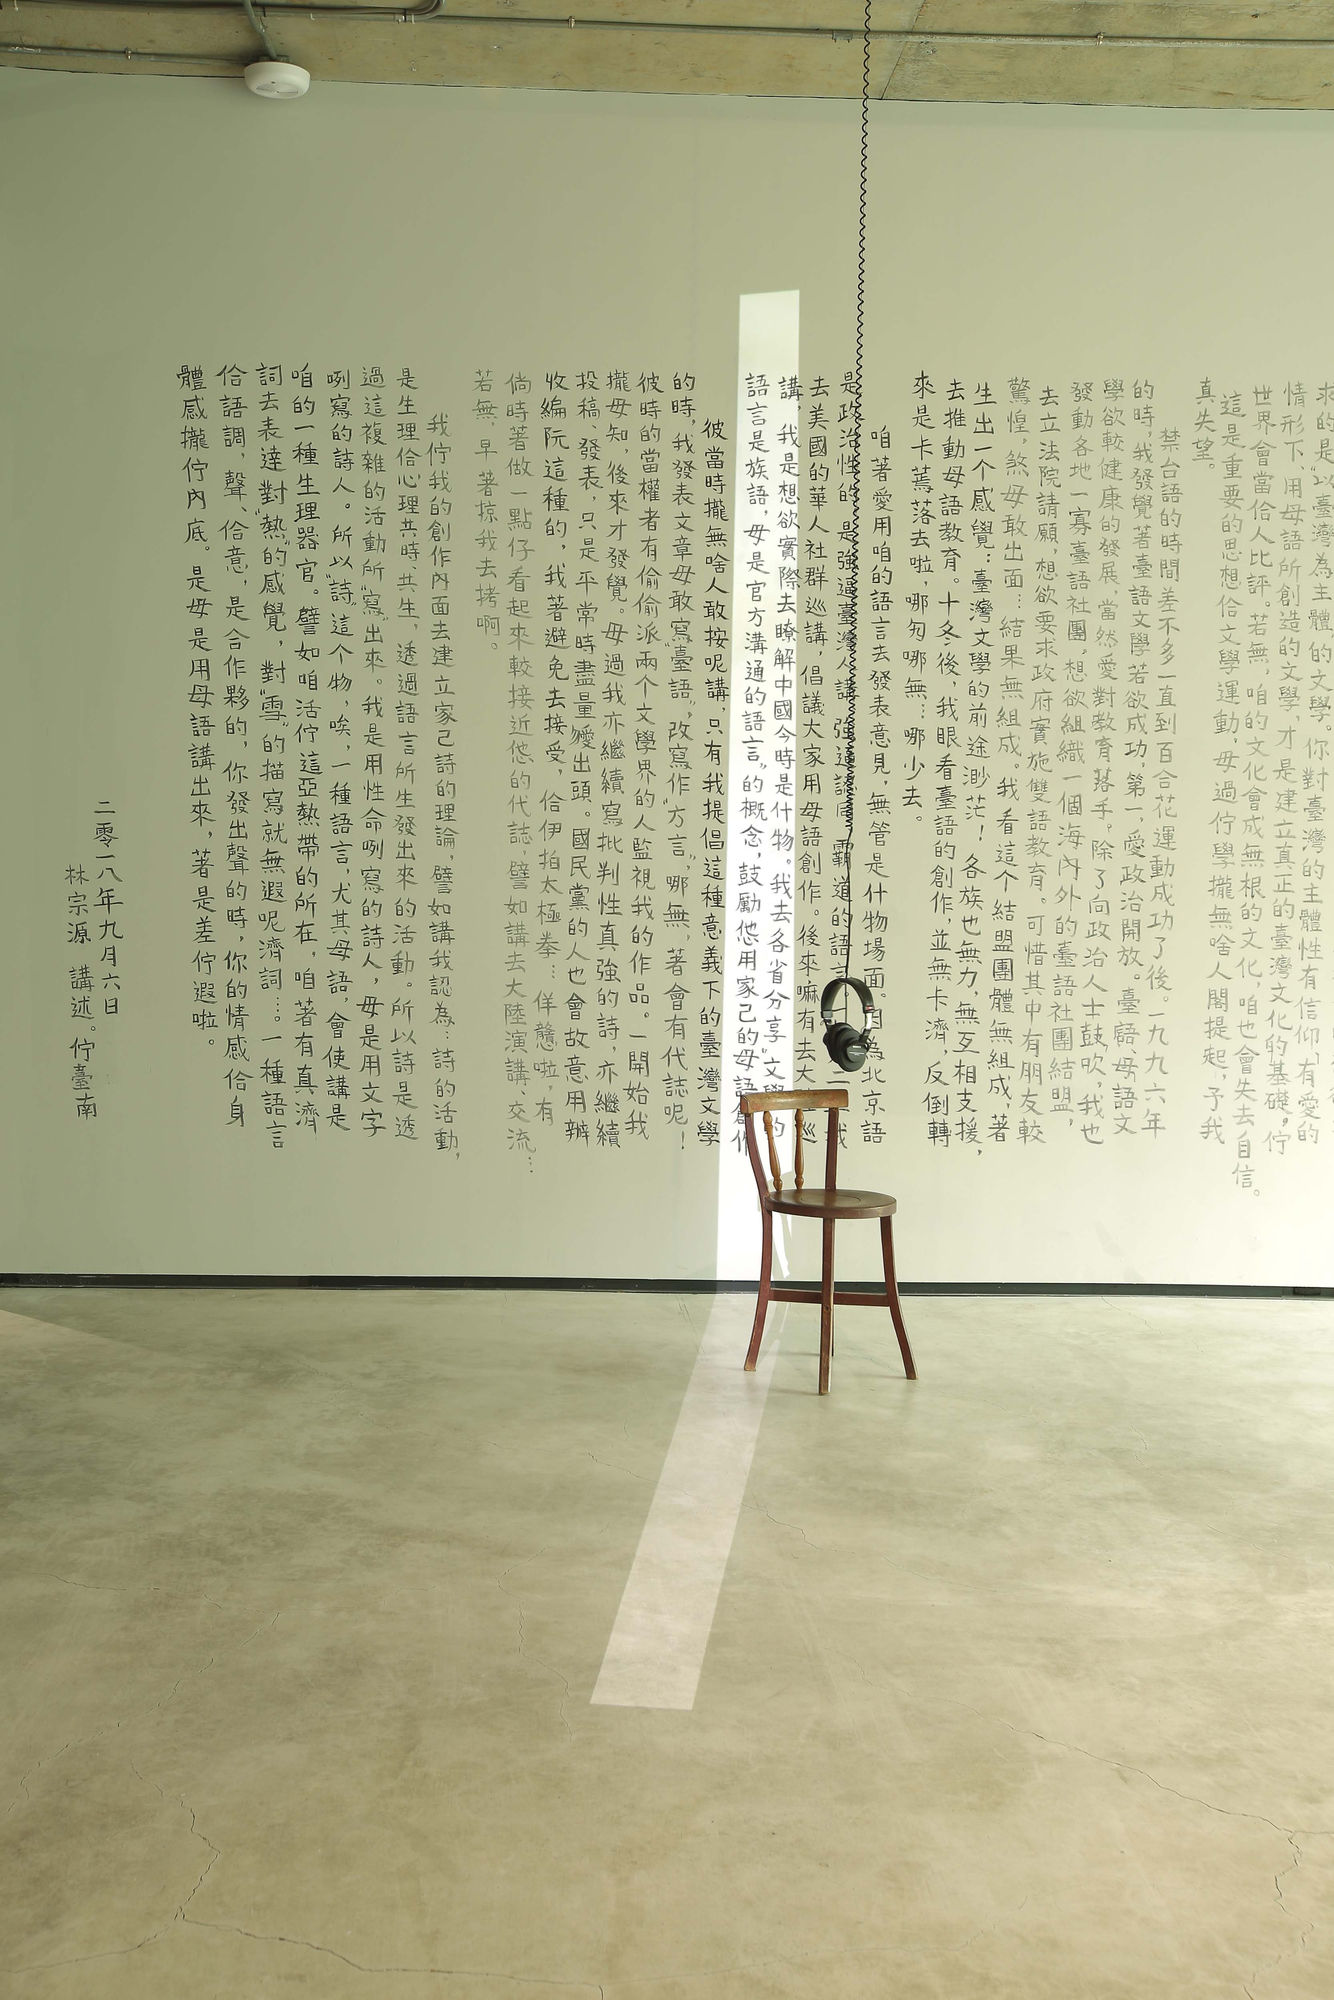 求的是“以臺灣為主體的文學。你對臺灣的主體性有信仰、有愛的
情形下，用母語所創造的文學，才是建立真正的臺灣文化的基礎，佇
世界會當佮人比評。若無，咱的文化會成無根的文化，咱也會失去自信。
這是重要的思想佮文學運動，毋過佇學攏無啥人閣提起，予我
真失望。
禁台語的時間差不多一直到百合花運動成功了後。一九九六年
的時，我發覺著臺語文學若欲成功，第一，愛政治開放。臺語、母語文
學欲較健康的發展，當然愛對教育落手。除了向政治人士鼓吹，我也
發動各地一寡臺語社團，想欲組織一個海內外的臺語社團結盟，
去立法院請願，想欲要求政府實施雙語教育。可惜其中有朋友較
驚惶，煞毋敢出面…結果無組成。我看這个結盟團體無組成，著
生出一个感覺：臺灣文學的前途渺茫！各族也無力，無互相支援，
去推動母語教育。十冬後，我眼看臺語的創作，並無卡濟，反倒轉
來是卡蔫落去啦，哪勼哪無…哪少去。
咱著愛用咱的語言去發表意見，無管是什物場面。因為北京語
是政治性的，是強逼臺灣人講、強逼認同，霸道的語言。
去美國的華人社群巡講，倡議大家用母語創作。後來嘛有去大陸巡
講，我是想欲實際去瞭解中國今時是什物。我去各省分享“文學的
語言是族語，毋是官方溝通的語言”的概念，鼓勵他用家己的母語創作
彼當時攏無啥人敢按呢講，只有我提倡這種意義下的臺灣文學
的時，我發表文章毋敢寫“臺語”，改寫作“方言”，哪無，著會有代誌呢！
彼時的當權者有偷偷派兩个文學界的人監視我的作品。一開始我
攏毋知，後來才發覺。毋過我亦繼續寫批判性真強的詩，亦繼續
投稿、發表，只是平常時盡量嬡出頭。國民黨的人也會故意用辦
收編阮這種的，我著避免去接受，佮伊拍太極拳…佯戇啦，有
倘時著做一點仔看起來較接近他的代誌，譬如講去大陸演講、交流…
若無，早著掠我去拷啊。
我佇我的創作內面去建立家己詩的理論，譬如講我認為：詩的活動，
是生理佮心理共時、共生，透過語言所生發出來的活動。所以詩是透
過這複雜的活動所“寫”出來。我是用性命咧寫的詩人，毋是用文字
咧寫的詩人。所以“詩”這个物，唉，一種語言，尤其母語，會使講是
咱的一種生理器官。譬如咱活佇這亞熱帶的所在，咱著有真濟
詞去表達對“熱”的感覺，對“雪”的描寫就無遐呢濟詞…。一種語言
佮語調，聲、佮意，是合作夥的，你發出聲的時，你的情感佮身
體感攏佇內底。是毋是用母語講出來，著是差佇遐啦。
二零一八年九月六日
林宗源 講述。佇臺南